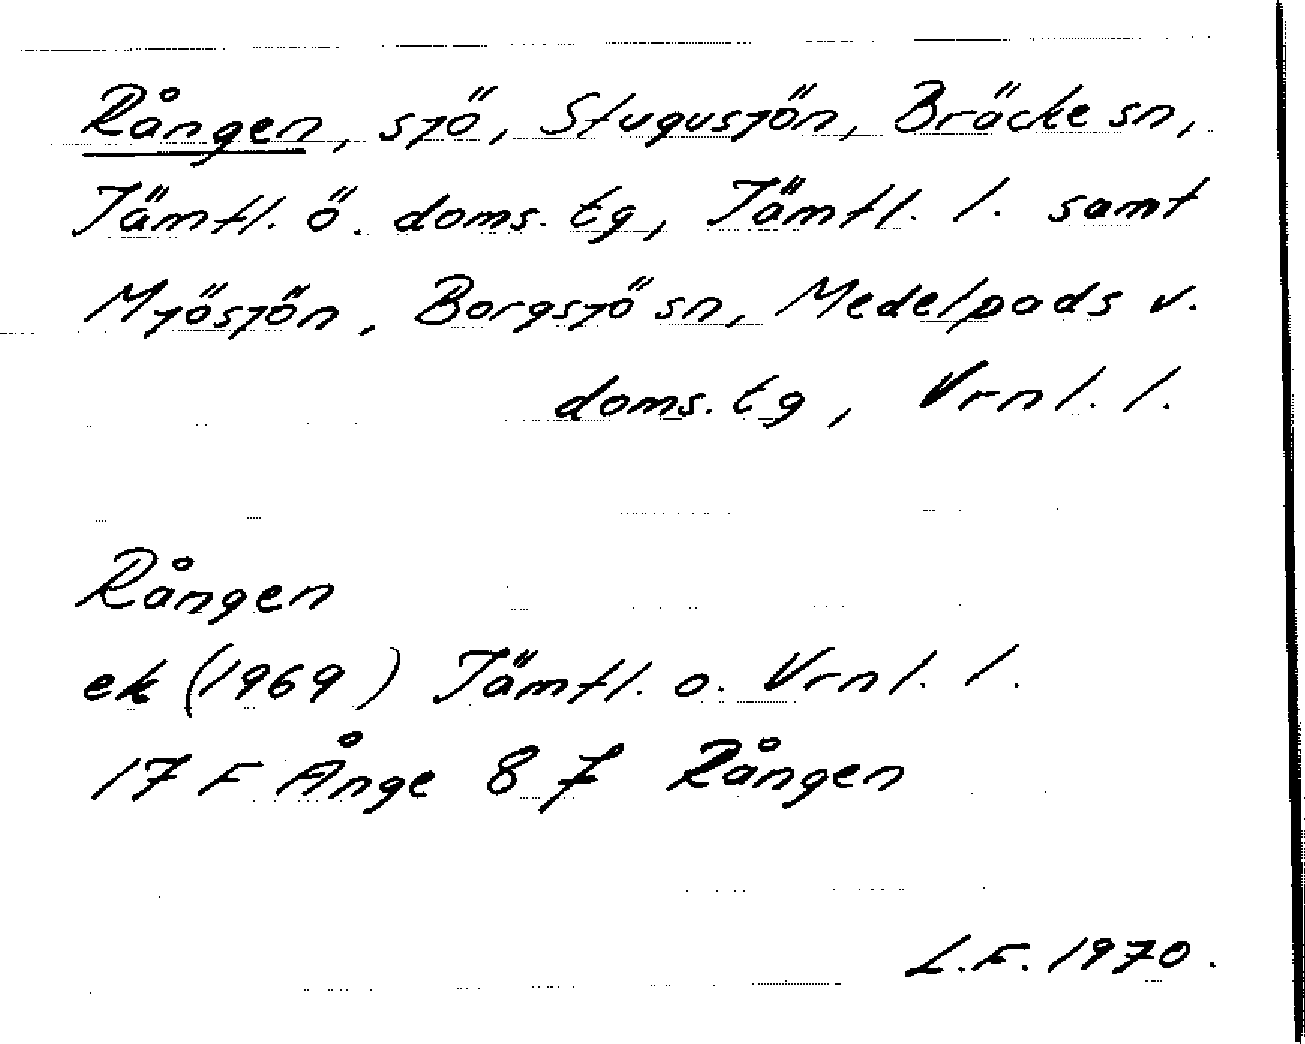 Rången, sjö, Stugusjön, Bräcke sn,
Jämtl. ö. doms. tg, Jämtl. l. samt
Myösjön, Borgsjö sn, Medelpads v.
doms. tg, Vrnl. l.
Rången
ek (1969) Jämtl. o. Vrnl. l.
17 F Ånge 8 f Rången
L.F. 1970.